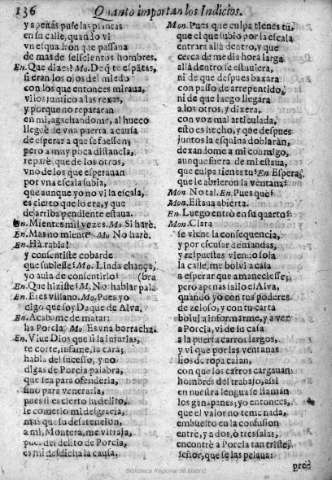 136 Quanto importan los Indicios.
y apenas puse las plantas
en su calle, quando vi
vn esquadron que passaua
de mas de seiscientos hombres.
En. Que dizes? Mo. De q̃ te espantas,
si eran los ojos del miedo
con los que entonces miraua,
vilos junto a las rexas,
y porque no reparassen
en mi, agachandome, al hueco
lleguè de vna puerta a causa
de esperar a que se fuessen;
pero a muy poca distancia,
reparè, que de los otros,
vno de los que esperauan
por vna escala subia,
que aunque yo no vi la escala,
es cierto que lo era, y que
de arriba pendiente estaua.
En. Mientes mil vezes. Mo. Si harè.
En. Mas no mientes. Mo. No harè.
En. Ha rabia!
y consentiste cobarde
que subiesse? Mo. Linda chança,
yo auia de consentirlo?
En. Que hiziste? M. No hablar palabra
En. Eres villano. Mo. Pues yo
digo que soy Duque de Alva.
En. Acabome de matar:
ha Porcia. Mo. Es vna borracha.
En. Viue Dios que si la
te corte, infame, la cara;
habla del sucesso, y no
digas de Porcia palabra,
que sea para ofenderla,
sino para venerarla,
pues si es cierto su delito,
le cometiò mi desgracia,
mas que su desatencion,
a mi, Montera, me vltraja,
pues del delito de Porcia,
es mi desdicha la causa.
Mon. Pues que culpa tienes tu,
que el que subiò por la escala
entrara allà dentro, y que
cerca de media hora larga
allà dentro se estuuiera,
ni de que despues baxara
con passo de arrepentido,
ni de que luego llegara
a los otros, y dixera,
con voz mal articulada,
esto es hecho, y que despues
juntos la esquina doblaran,
dexandome a mi conmigo,
aunque fuera de mi estaua,
que culpa tienes tu? En. Espera,
que le abrieron la ventana?
Mon. No tal. En. Pues que?
Mon. Estaua abierta.
En. Luego entrò en su quarto?
Mon. Clara
se viene la consequencia,
y por escusar demandas,
y respuestas viendo sola
la calle, me bolvi a casa
a esperar que amaneciesse;
pero apenas saliò el Alva,
quando yo con tus poderes
de zeloso, y con tu carta
bolvi a informarme, y a ver
a Porcia, vi de su casa
a la puerta carros largos,
y vi que por las ventanas
lios de ropa caian,
con que los carros cargauan
hombres del trabajo, assi
en nuestra lengua se llaman
los ganapanes, yo entonces,
que el valor no teme nada,
embuelto en la confusion
entrè, y a dos, ò tres salas,
encontrè a Porcia tan triste,
señor, que se las pelaua:
pred
Biblioteca Regional de Madrid